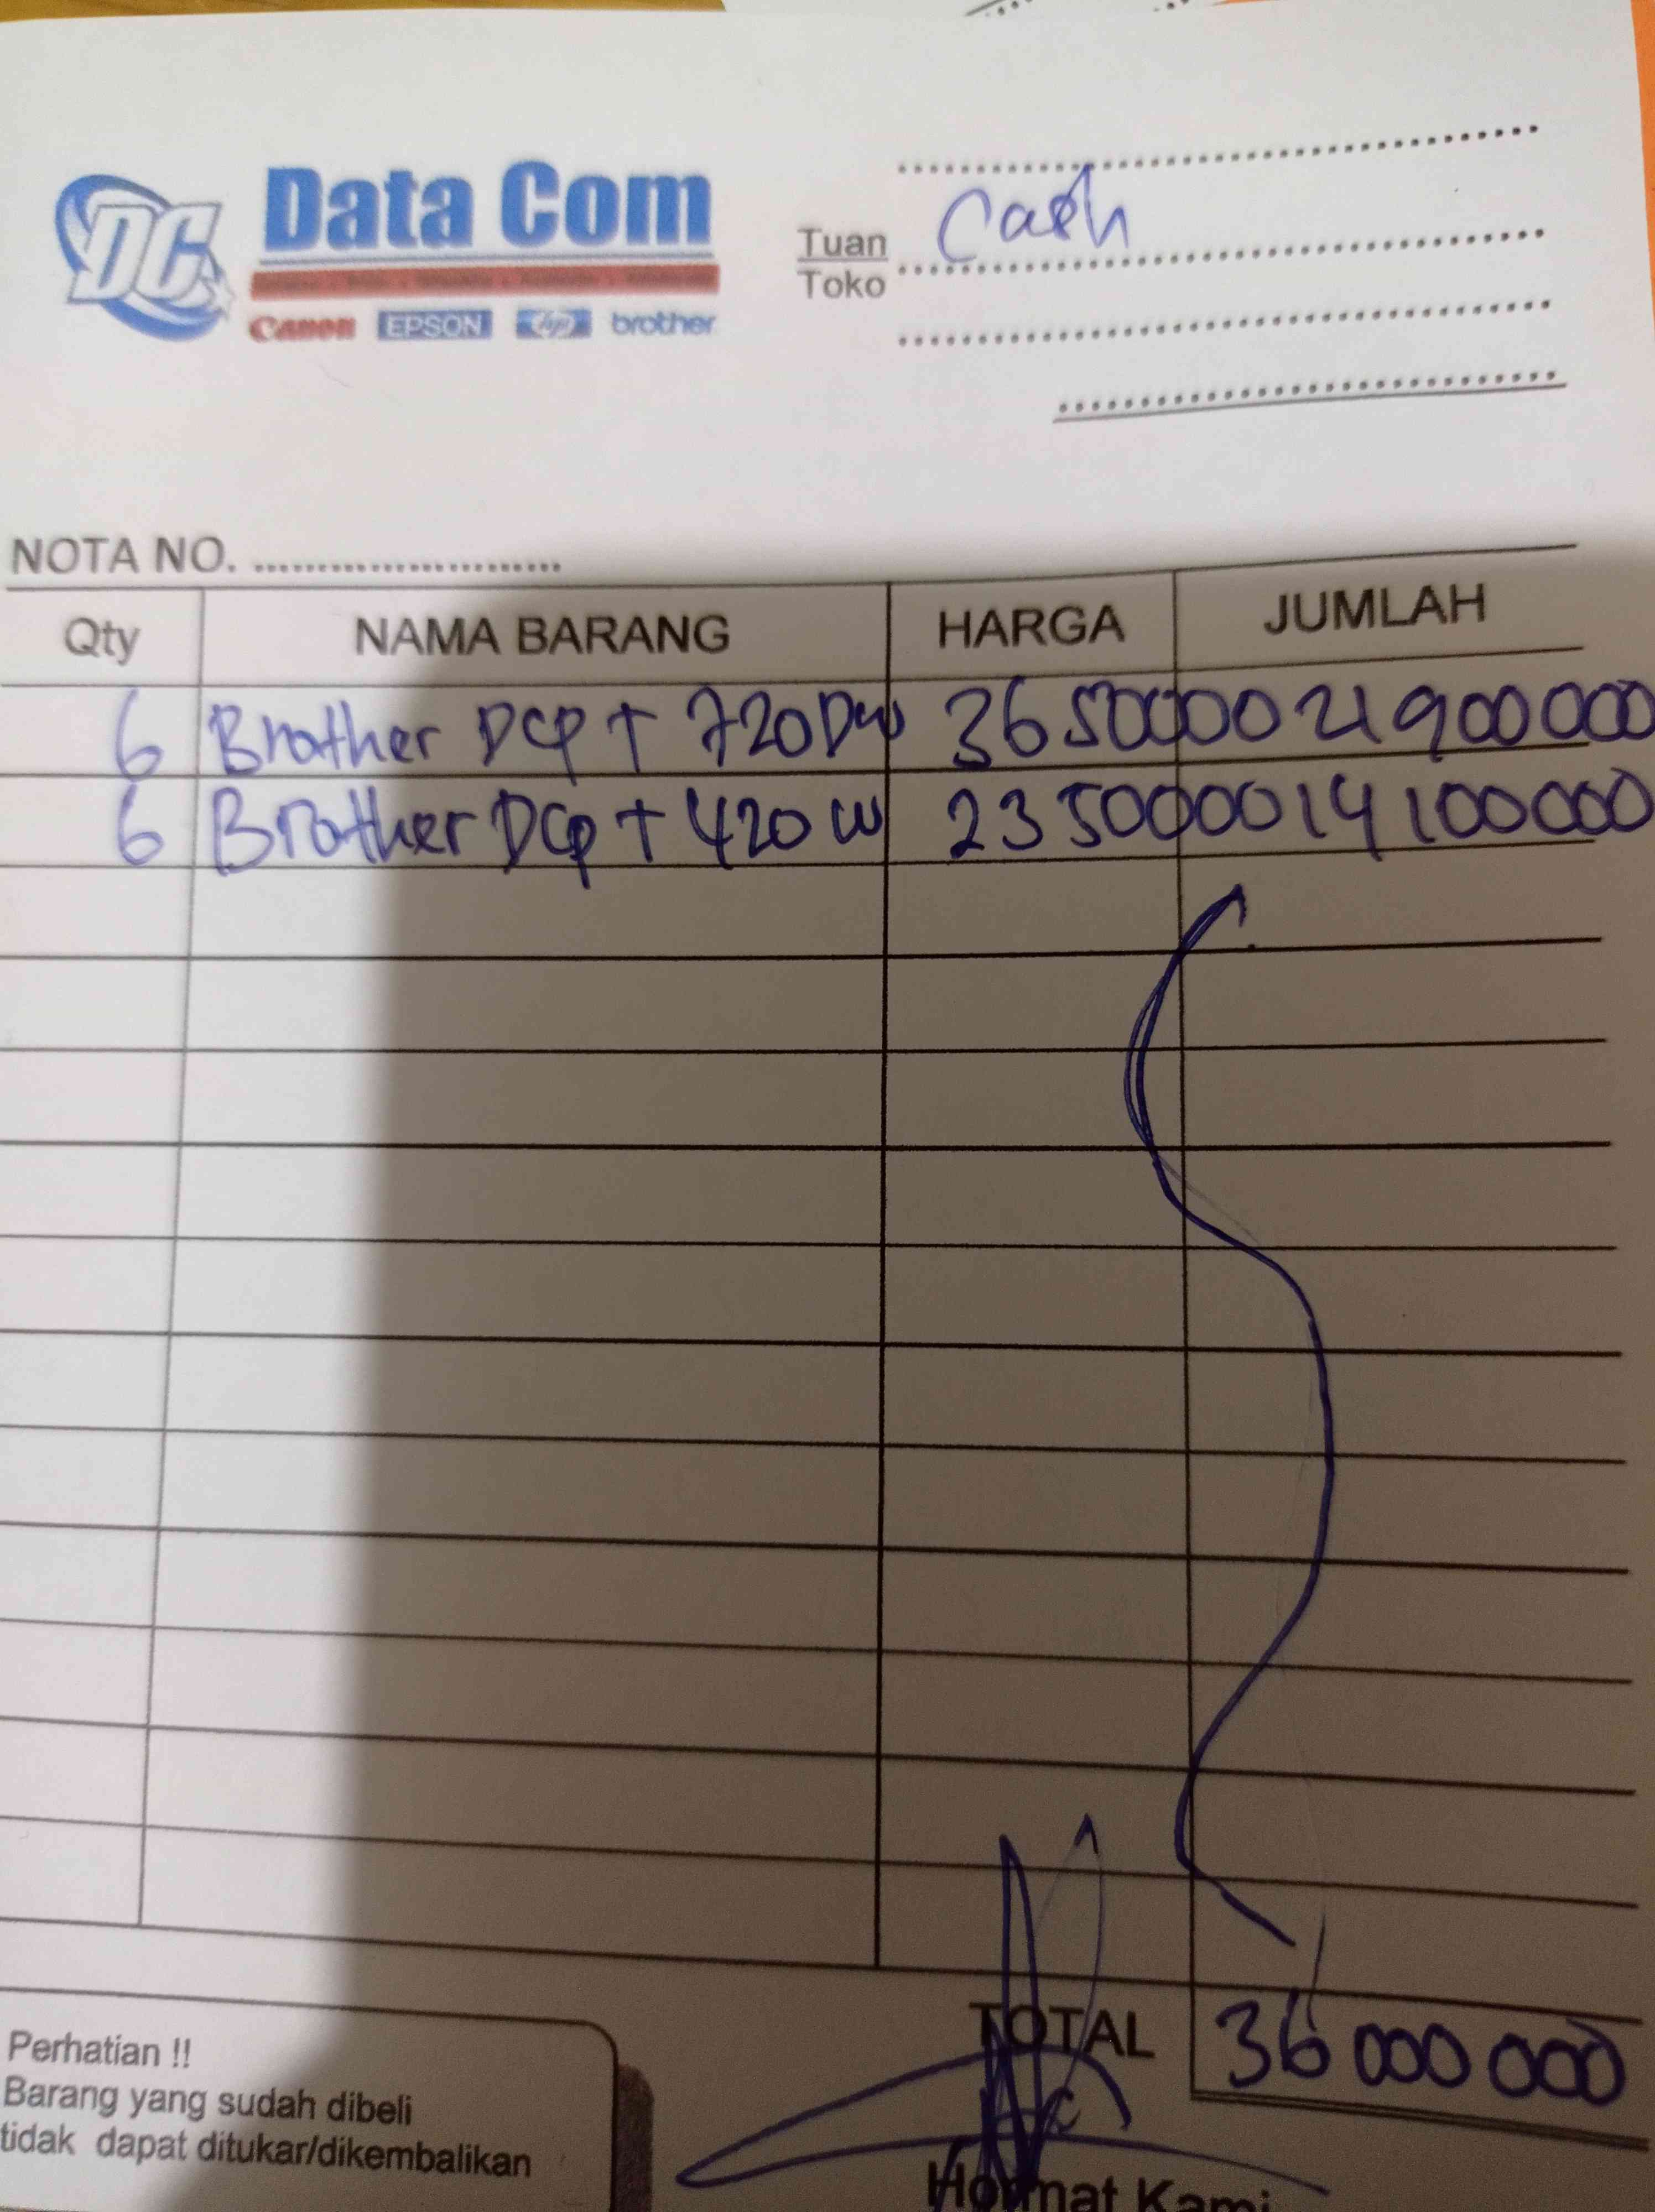 Data Com
DC
Canon EPSON hp brother
Tuan Cash
Toko
NOTA NO. ........................
Qty NAMA BARANG HARGA JUMLAH
6 Brother DCP T 720DW 3650000 21900000
6 Brother DCP T 420W 2350000 14100000
TOTAL 36000000
Perhatian !!
Barang yang sudah dibeli
tidak dapat ditukar/dikembalikan
Hormat Kami